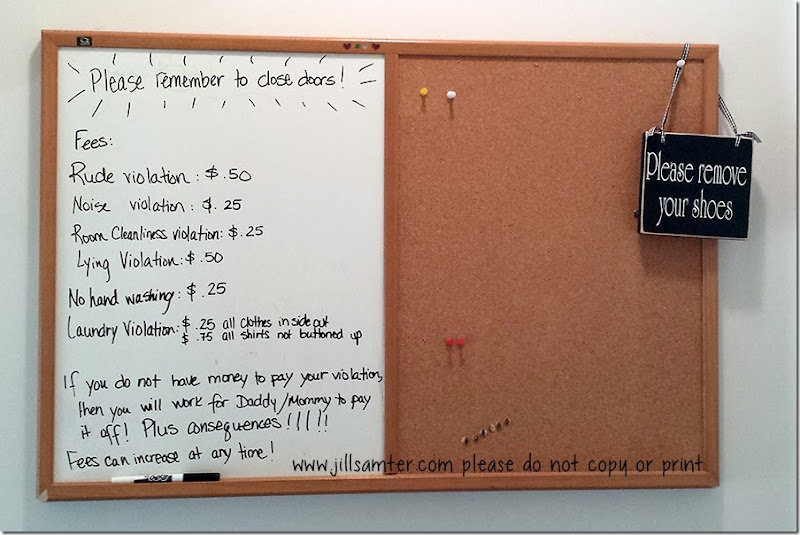 Please remember to close doors!
Fees:
Rude violation: $.50
Noise violation: $.25
Room Cleanliness violation: $.25
Lying Violation: $.50
No hand washing: $.25
Laundry Violation: $.25 all clothes inside out
$.75 all shirts not buttoned up
If you do not have money to pay your violation,
then you will work for Daddy/Mommy to pay
it off! Plus consequences!!!!!!
Fees can increase at any time!
Please remove
your shoes
www.jillsamter.com please do not copy or print